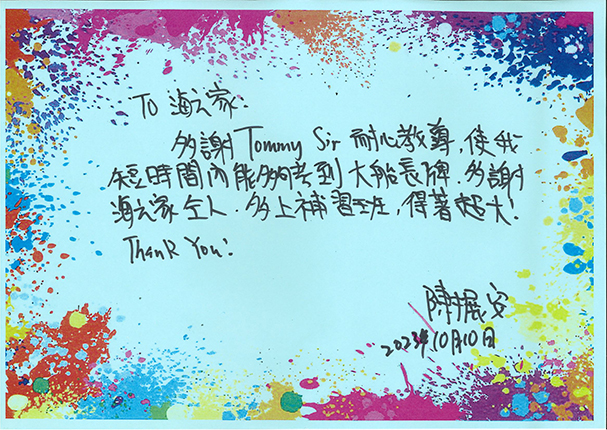 To 海之家:
多謝 Tommy Sir 耐心教導, 使我
短時間內能夠考到大船長牌. 多謝
海之家全人. 多上補習班, 得著超大!
Thank You!
陳振安
2023年10月10日